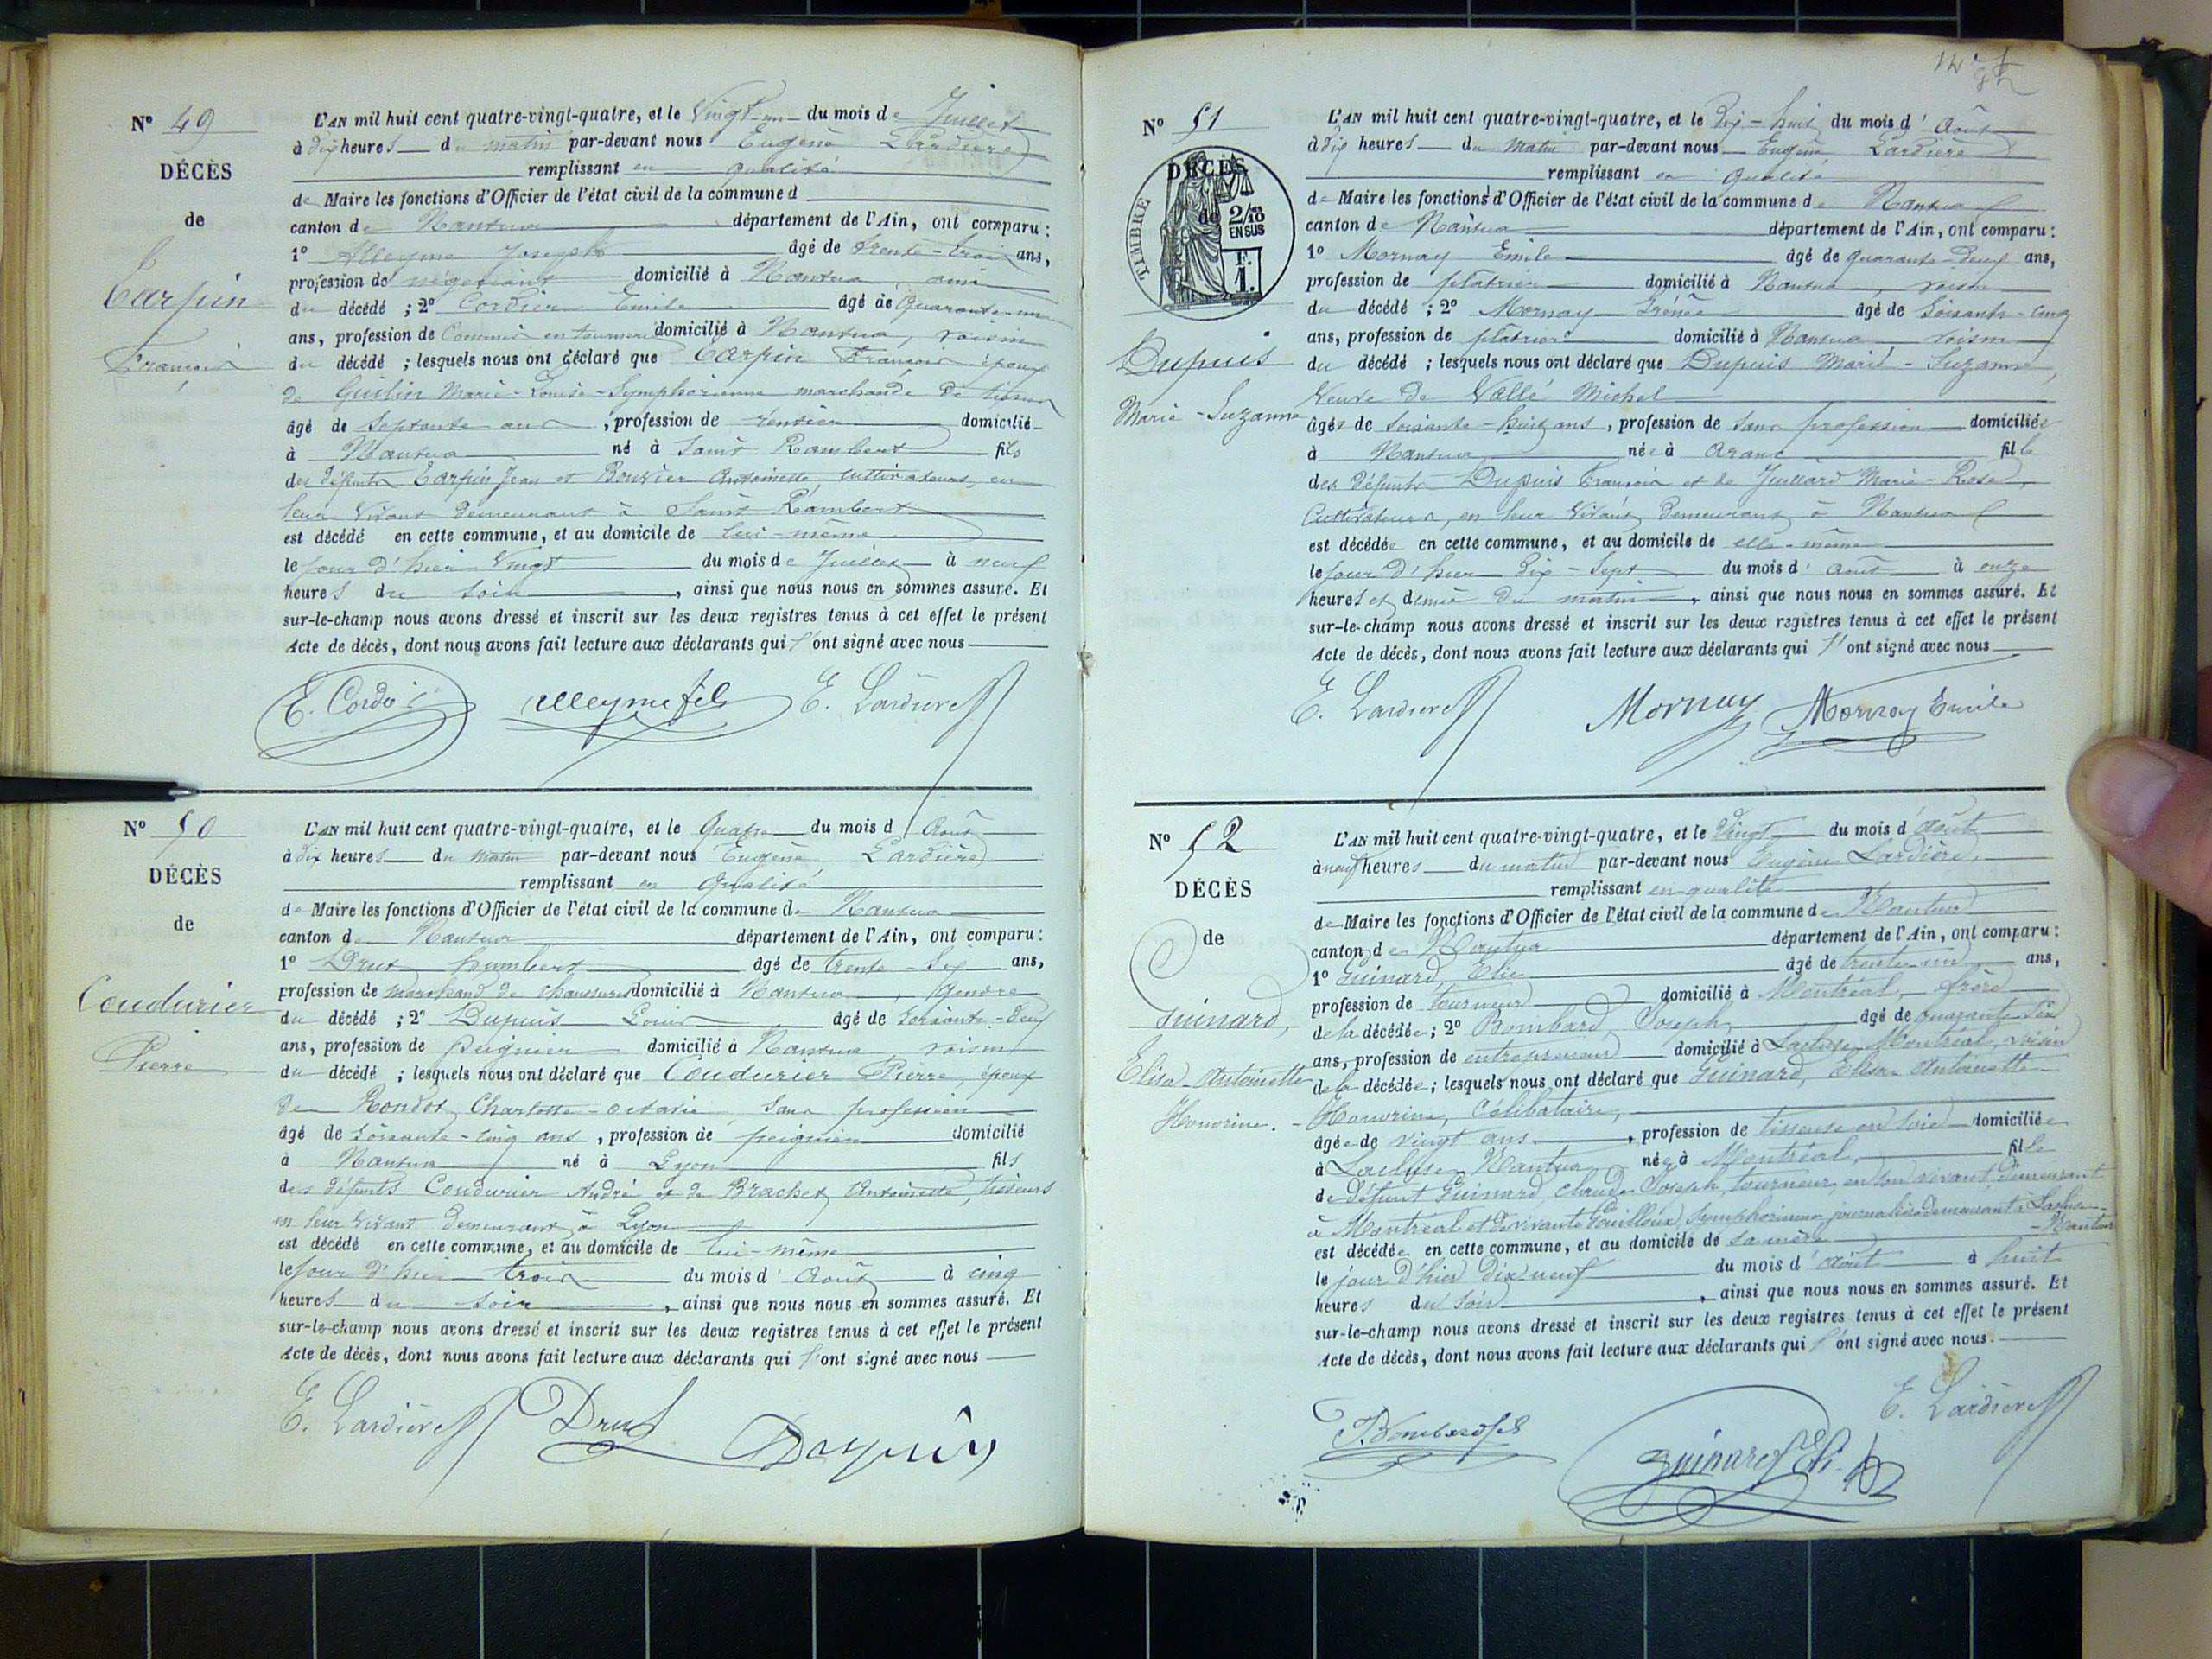 Nº 49
DÉCÈS
de
Carpin
François
L'AN mil huit cent quatre-vingt-quatre, et le Vingt-un du mois de Juillet
à dix heures du matin par-devant nous Eugène Lardière
remplissant en qualité
de Maire les fonctions d'Officier de l'état civil de la commune d
canton de Nantua département de l'Ain, ont comparu:
1º Alleyme Joseph âgé de trente-trois ans,
profession de négociant domicilié à Nantua, ami
du décédé ; 2º Cordier Emile âgé de Quarante-un
ans, profession de Commis en tournerie domicilié à Nantua, voisin
du décédé ; lesquels nous ont déclaré que Carpin François époux
de Guilin Marie-Louise-Symphorienne marchande de tissus
âgé de septante ans, profession de rentier domicilié
à Nantua né à Saint Rambert fils
des défunts Carpin Jean et Bouvier Antoinette, cultivateurs, en
leur vivant demeurant à Saint Rambert
est décédé en cette commune, et au domicile de lui-même
le jour d'hier Vingt du mois de Juillet à neuf
heures du soir, ainsi que nous nous en sommes assuré. Et
sur-le-champ nous avons dressé et inscrit sur les deux registres tenus à cet effet le présent
Acte de décès, dont nous avons fait lecture aux déclarants qui l'ont signé avec nous
E. Cordier Alleyme fils E. Lardière
Nº 50
DÉCÈS
de
Coudurier
Pierre
L'AN mil huit cent quatre-vingt-quatre, et le Quatre du mois d'Août
à dix heures du matin par-devant nous Eugène Lardière
remplissant en qualité
de Maire les fonctions d'Officier de l'état civil de la commune de Nantua
canton de Nantua département de l'Ain, ont comparu:
1º Drut humbert âgé de trente-six ans,
profession de marchand de chaussures domicilié à Nantua, Gendre
du décédé ; 2º Dupuis Louis âgé de soixante-deux
ans, profession de peignier domicilié à Nantua voisin
du décédé ; lesquels nous ont déclaré que Coudurier Pierre, époux
de Rondot Charlotte-octavie sans profession
âgé de soixante-cinq ans, profession de peignier domicilié
à Nantua né à Lyon fils
des défunts Coudurier André et de Brachet Antoinette, tisseurs
en leur vivant demeurant à Lyon
est décédé en cette commune, et au domicile de lui-même
le jour d'hier trois du mois d'Août à cinq
heures du soir, ainsi que nous nous en sommes assuré. Et
sur-le-champ nous avons dressé et inscrit sur les deux registres tenus à cet effet le présent
Acte de décès, dont nous avons fait lecture aux déclarants qui l'ont signé avec nous
E. Lardière Drut Dupuis
Nº 51
DÉCÈS
de
TIMBRE
2/10 EN SUS
F. 1.
Dupuis
Marie-Suzanne
L'AN mil huit cent quatre-vingt-quatre, et le Dix-huit du mois d'Août
à dix heures du matin par-devant nous Eugène Lardière
remplissant en qualité
de Maire les fonctions d'Officier de l'état civil de la commune de Nantua
canton de Nantua département de l'Ain, ont comparu:
1º Mornay Emile âgé de quarante-deux ans,
profession de plâtrier domicilié à Nantua, voisin
du décédé ; 2º Mornay Irénée âgé de soixante-cinq
ans, profession de plâtrier domicilié à Nantua voisin
du décédé ; lesquels nous ont déclaré que Dupuis Marie-Suzanne,
Veuve de Vallé Michel
âgée de soixante-huit ans, profession de sans profession domiciliée
à Nantua née à Aranc fille
des défunts Dupuis François et de Juillard Marie-Rose,
Cultivateurs, en leur vivant, demeurant à Nantua
est décédée en cette commune, et au domicile de elle-même
le jour d'hier dix-sept du mois d'août à onze
heures et demie du matin, ainsi que nous nous en sommes assuré. Et
sur-le-champ nous avons dressé et inscrit sur les deux registres tenus à cet effet le présent
Acte de décès, dont nous avons fait lecture aux déclarants qui l'ont signé avec nous
E. Lardière Mornay Mornay Emile
Nº 52
DÉCÈS
de
Guinard,
Elisa-Antoinette
Honorine.
L'AN mil huit cent quatre-vingt-quatre, et le Vingt du mois d'août
à neuf heures du matin par-devant nous Eugène Lardière,
remplissant en qualité
de Maire les fonctions d'Officier de l'état civil de la commune de Nantua
canton de Nantua département de l'Ain, ont comparu:
1º Guinard, Elie âgé de trente-un ans,
profession de tourneur domicilié à Montréal, frère
de la décédée; 2º Bombard, Joseph, âgé de quarante-six
ans, profession de entrepreneur domicilié à Lacluse Montréal, voisin
de la décédée; lesquels nous ont déclaré que Guinard, Elisa Antoinette
Honorine, Célibataire,
âgée de vingt ans, profession de tisseuse en soie domiciliée
à Lacluse Nantua, née à Montréal, fille
de défunt Guinard, Claude Joseph, tourneur, en son vivant demeurant
à Montréal et de vivante Gouilloux, Symphorienne journalière demeurant à Lacluse
-Nantua
est décédée en cette commune, et au domicile de sa mère
le jour d'hier Dix-neuf du mois d'août à huit
heures du soir, ainsi que nous nous en sommes assuré. Et
sur-le-champ nous avons dressé et inscrit sur les deux registres tenus à cet effet le présent
Acte de décès, dont nous avons fait lecture aux déclarants qui l'ont signé avec nous.
E. Lardière
J. Bombard Guinard Elie